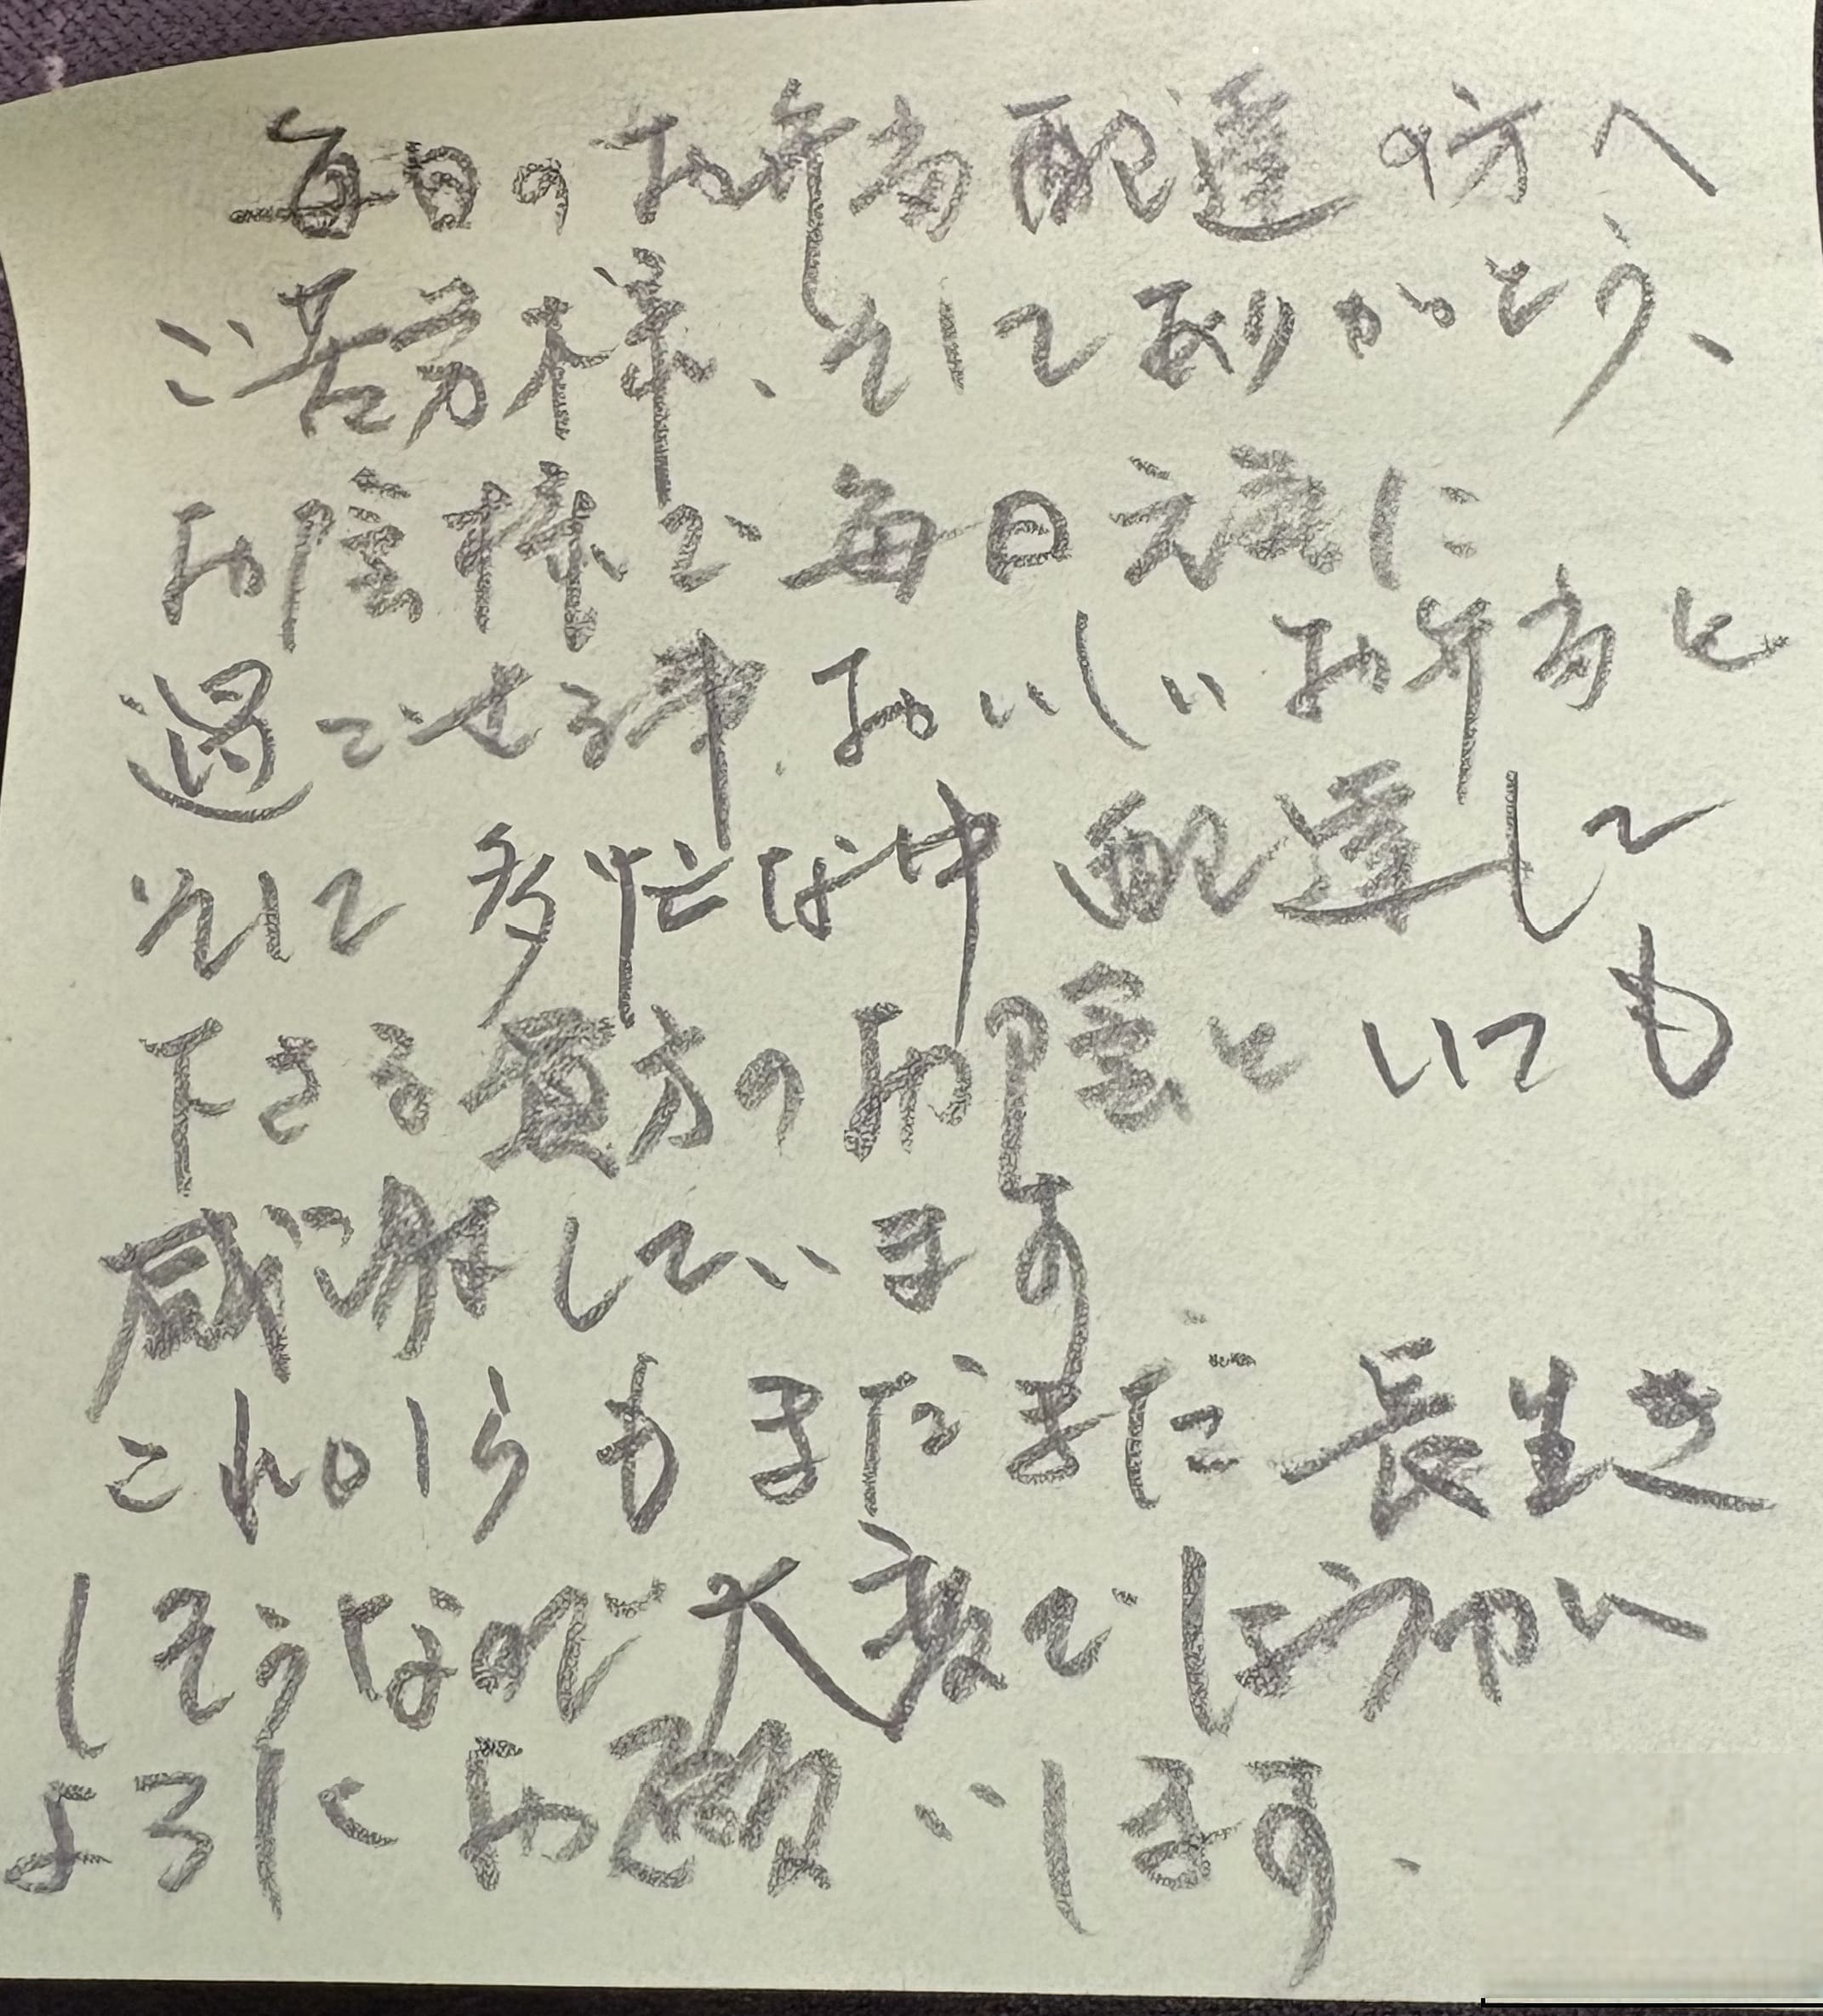 毎日のお弁当配達の方へ
ご苦労様、そしてありがとう、
お陰様で毎日元気に
過ごせる事、おいしいお弁当と
そして多忙な中配達して
下さる貴方のお陰といつも
感謝しています
これからもまだまだ長生き
しそうなので大変でしょうが
よろしくお願いします、